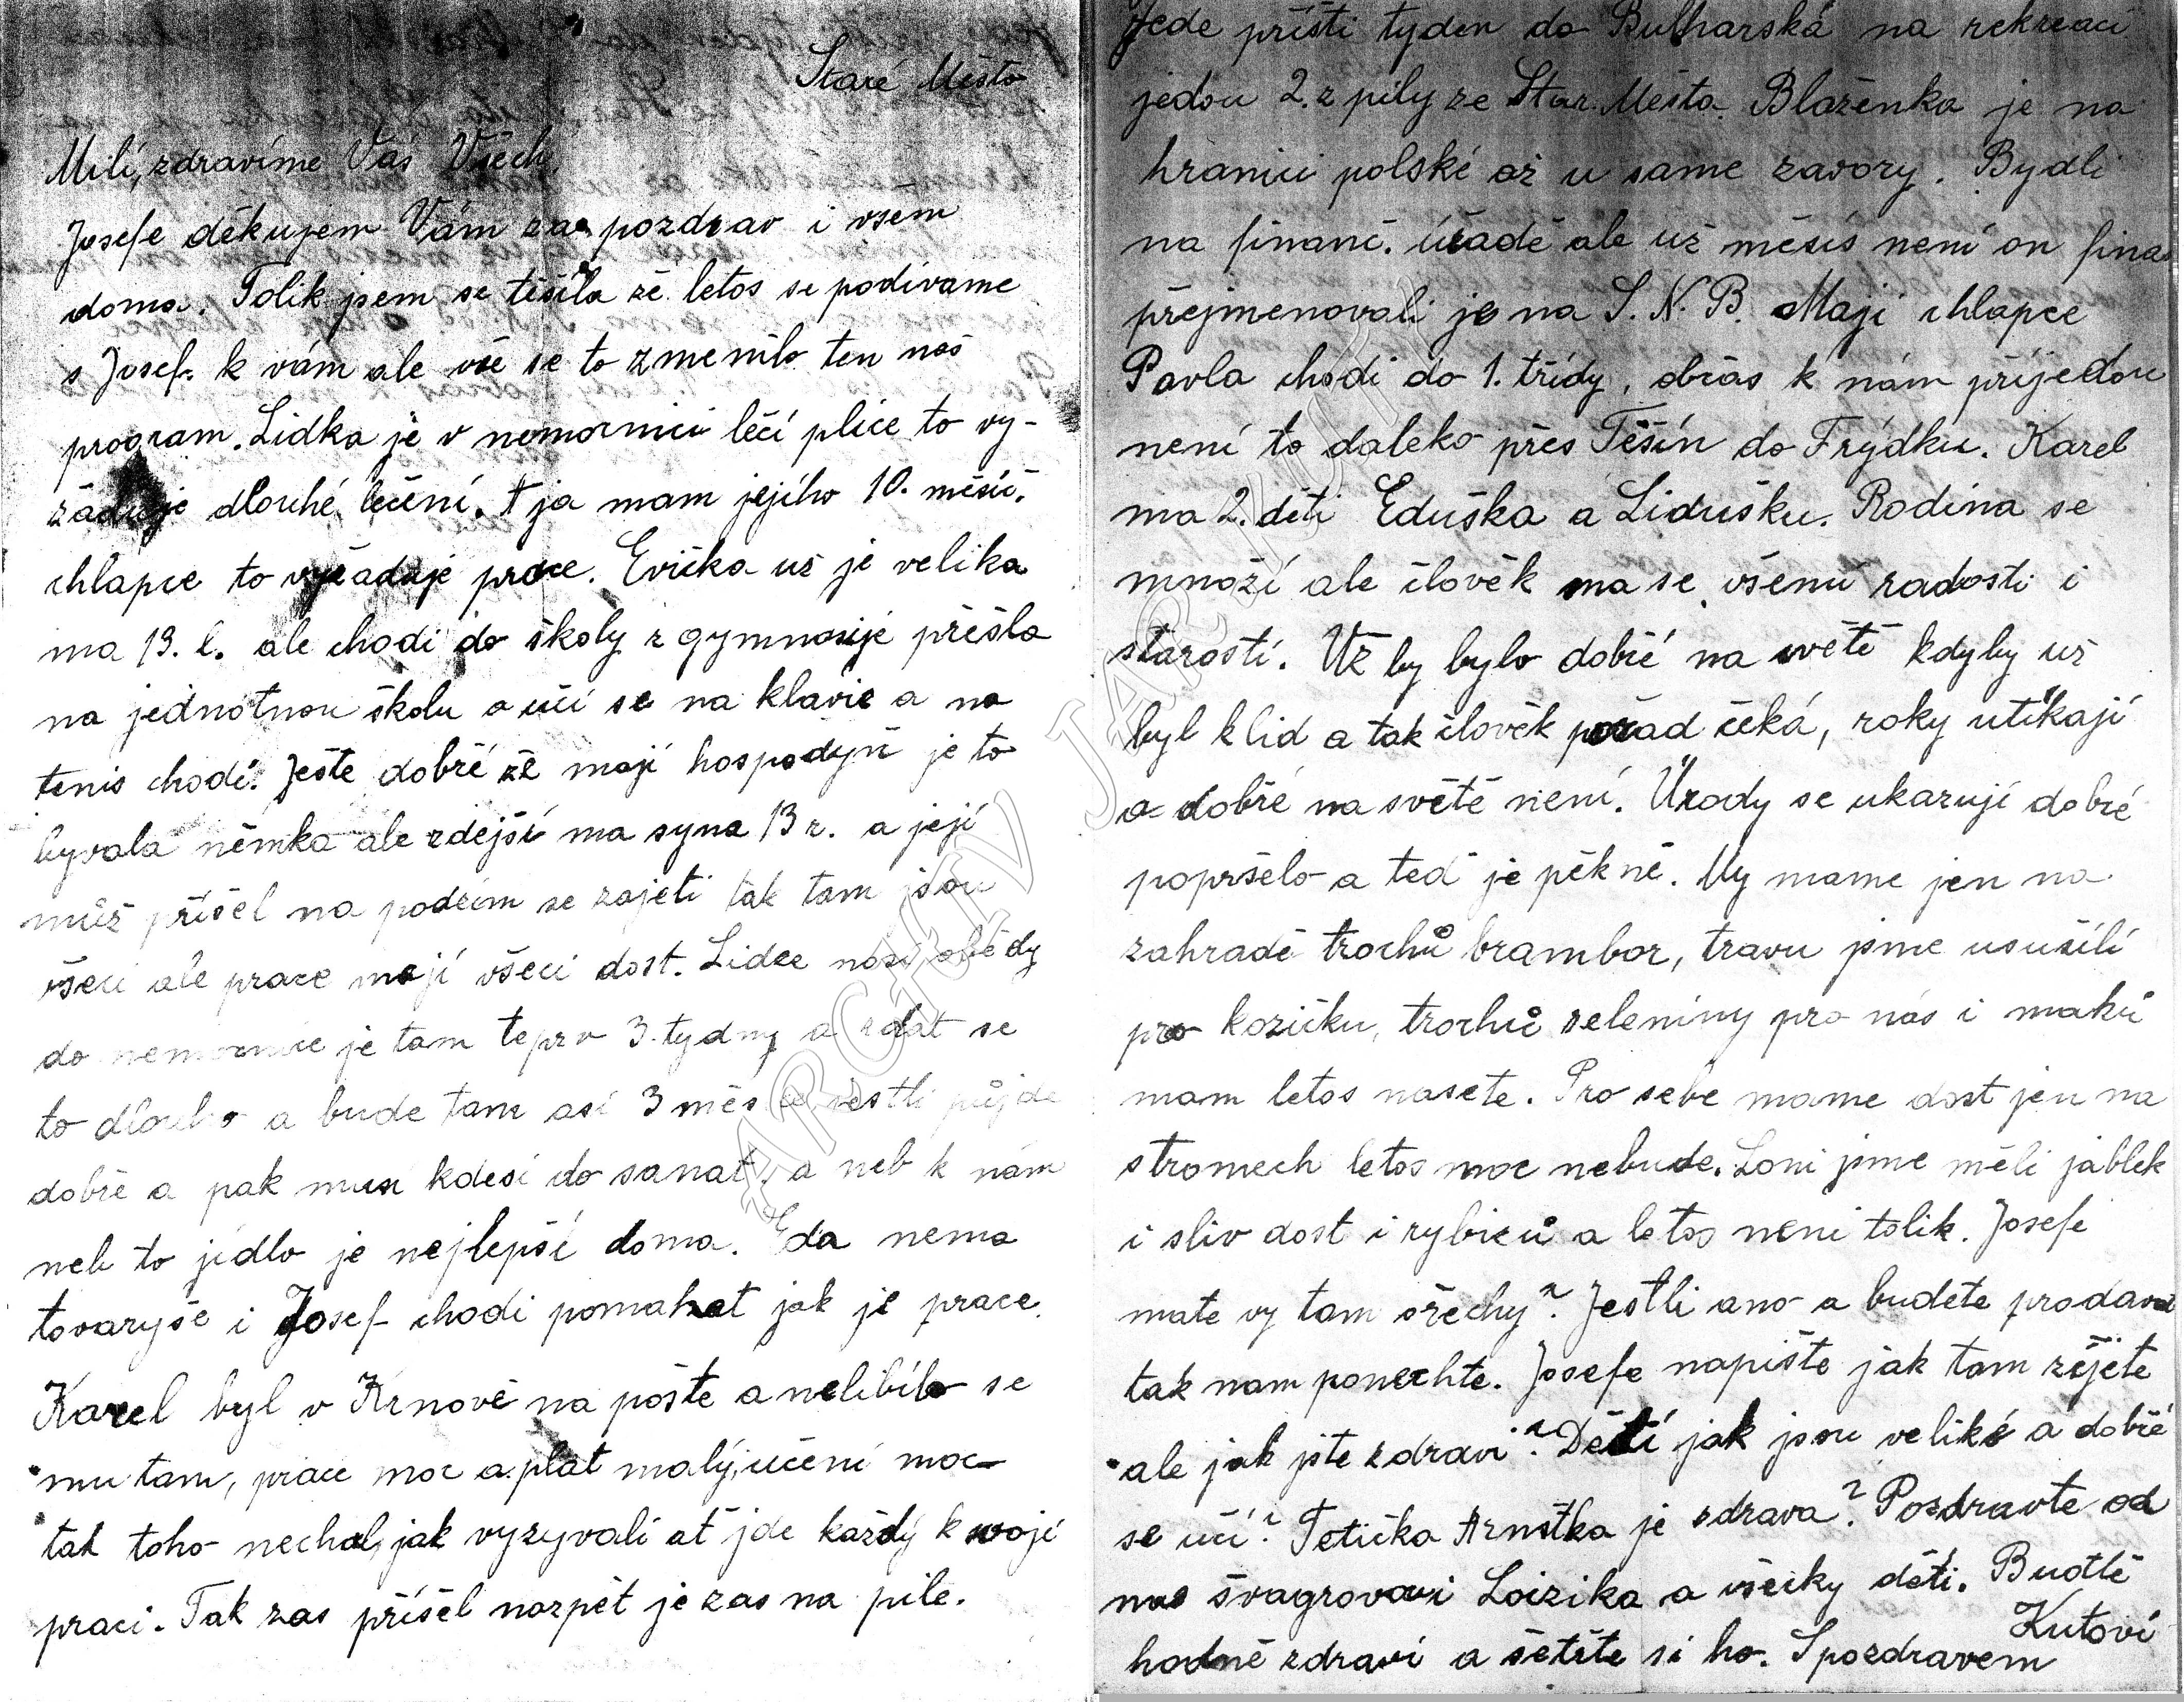 Staré Město
Milí, zdravíme Vás Všech,
Josefe děkujem Vám za pozdrav i všem
doma. Tolik jsem se těšila že letos se podívame
s Josef. k vám ale vše se to zmenilo ten náš
program. Lidka je v nemocnici léčí plíce to vy-
žaduje dlouhé léčení. A ja mam jejího 10. měsíč.
chlapce to vyžaduje prace. Evička už je velika
ma 13. l. ale chodi do školy z gymnasije přešla
na jednotnou školu a učí se na klavír a na
tenis chodí. Ješte dobře že mají hospodyň je to
byvala němka ale zdejší ma syna 13 r. a její
můž přišel na podzim ze zajetí tak tam jsou
všeci ale prace mají všeci dost. Lidce nosí obědy
do nemocnice je tam teprv 3. tydny a zdát se
to dlouho a bude tam asi 3 měsíce jestli půjde
dobře a pak musi kdesi do sanat. a neb k nám
neb to jídlo je nejlepší doma. Eda nema
tovaryše i Josef chodi pomahat jak je prace.
Karel byl v Krnově na pošte a nelibilo se
mu tam, prace moc a plat malý, učení moc
tak toho nechal, jak vyzyvali ať jde každý k svojí
praci. Tak zas příšel nazpět je zas na pile.
Jede příští tyden do Bulharská na rekreaci
jedou 2. z pily ze Star. Města. Blaženka je na
hranici polské až u same zavory. Bydlí
na finanč. úřadě ale už měsíc není on finan
přejmenovali je na S. N. B. Mají chlapce
Pavla chodi do 1. třídy, občas k nám příjedou
není to daleko přes Těšín do Frýdku. Karel
ma 2. děti Eduška a Lidušku. Rodina se
množí ale člověk ma se všemi radosti i
starosti. Už by bylo dobře na světě kdyby už
byl klid a tak člověk pořad čeká, roky utíkají
a dobře na světě není. Úrody se ukazují dobré
popršelo a teď je pěkně. My mame jen na
zahradě trochů brambor, travu jsme usušili
pro kozičku, trochů zeleniny pro nás i maků
mam letos nasete. Pro sebe mame dost jen na
stromech letos moc nebude. Loni jsme měli jablek
i sliv dost i rybizů a letos neni tolik. Josefe
mate vy tam ořechy? Jestli ano a budete prodavat
tak nam ponechte. Josefe napište jak tam žijete
ale jak jste zdravi? Dětí jak jsou veliké a dobře
se učí? Tetička Arnstka je zdrava? Pozdravte od
nas švagrovavi Loizika a všecky děti. Buďte
hodně zdraví a šetřte si ho. S pozdravem
Kutoví
ARCHIV JAR. KUTI